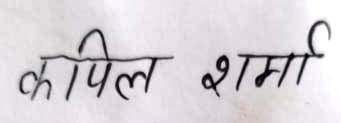 कपिल शर्मा